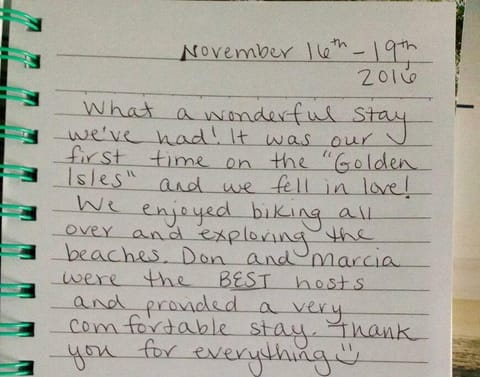 November 16th - 19th,
2016
What a wonderful stay
we've had! It was our
first time on the "Golden
Isles" and we fell in love!
We enjoyed biking all
over and exploring the
beaches. Don and Marcia
were the BEST hosts
and provided a very
comfortable stay. Thank
you for everything